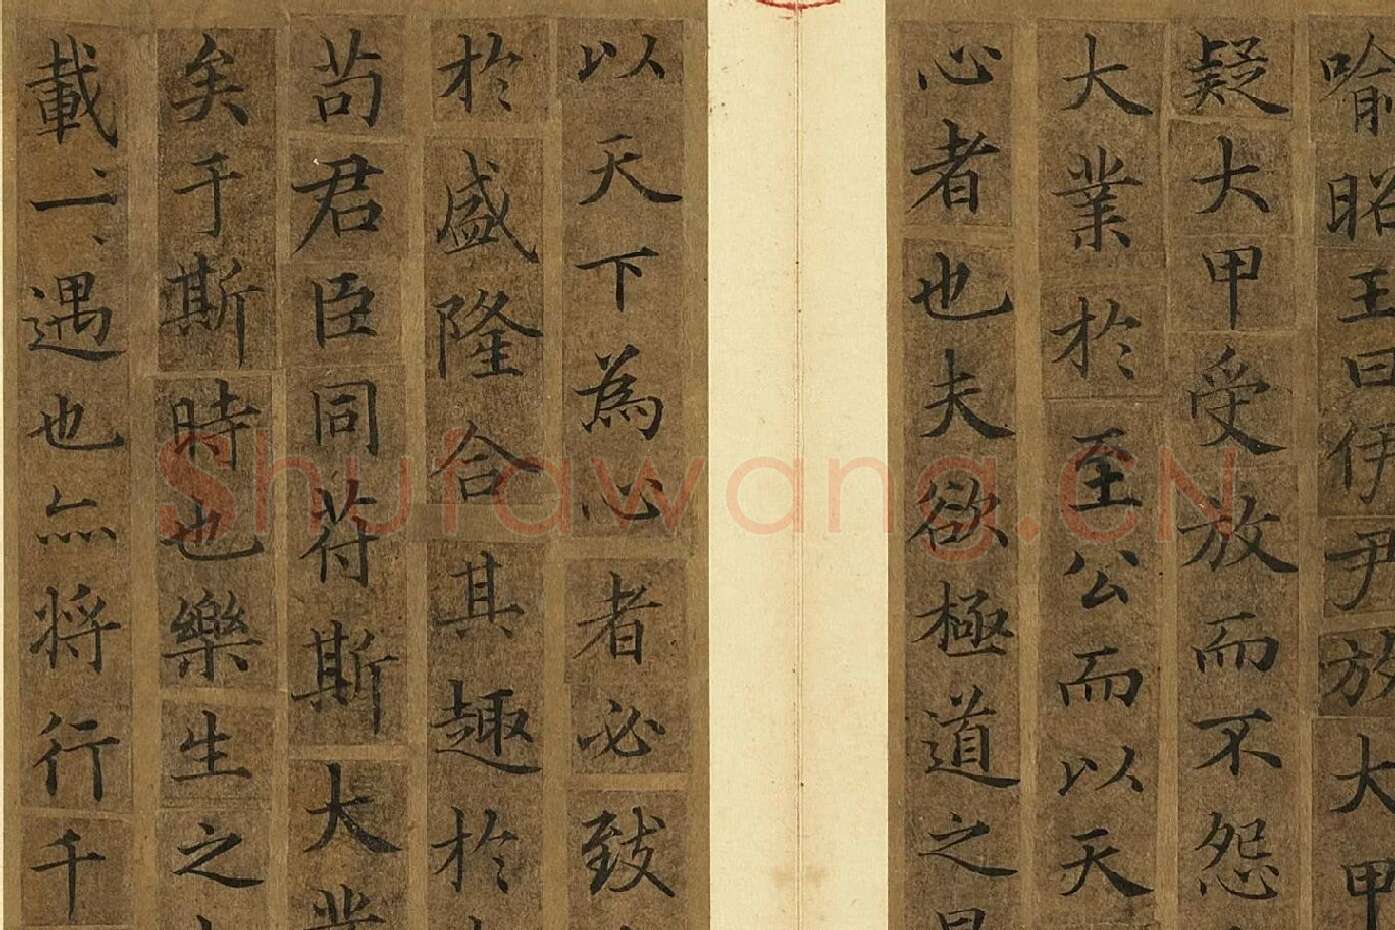 喻昭王曰伊尹放大甲
疑大甲受放而不怨
大業於至公而以天
心者也夫欲極道之
以天下為心者必致
於盛隆合其趣於
苟君臣同符斯大業
矣于斯時也樂生之
載一遇也亦將行千
Shufawang.CN